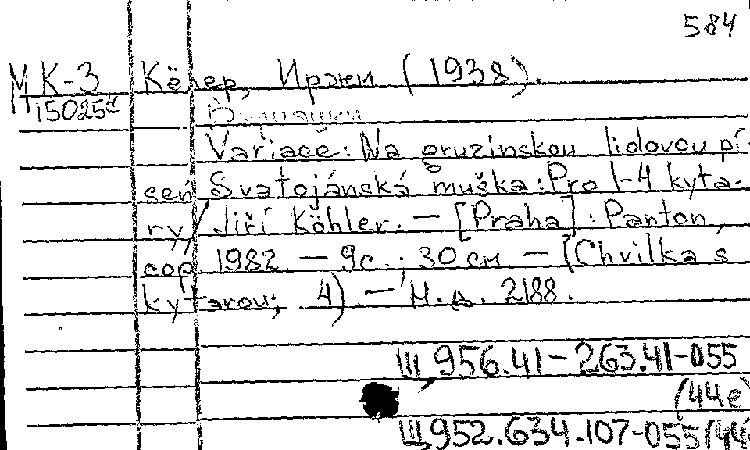 584
МК-3 Кёлер, Иржи (1938).
15025d
Variace: Na gruzínskou lidovou pí-
seň Svatojánská muška: Pro 1-4 kyta-
ry / Jiří Köhler. — [Praha]: Panton,
cop 1982 — 9с.; 30 см — (Chvilka s
kytarou; 4) — Н.д. 2188.
Щ 956.41-263.41-055
(44е)
Щ 952.634.107-055(44